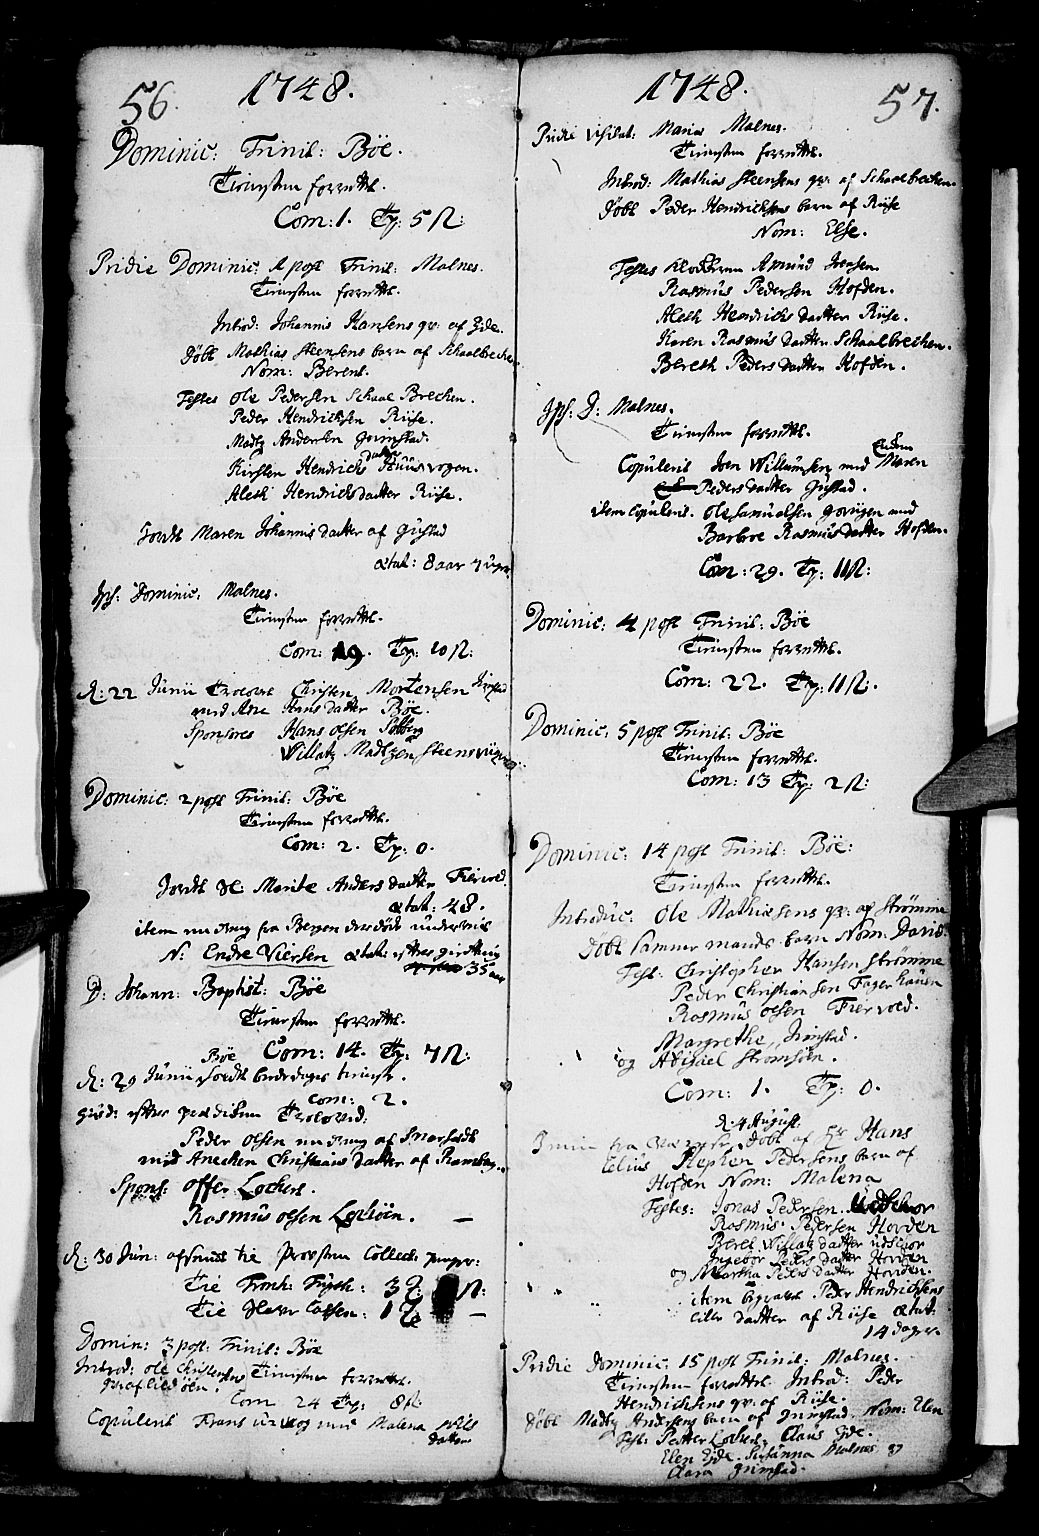 56.
1748.
Dominic: Trinit: Böe.
Tienesten forrettet.
Com: 1. Tp: 5 ß:
Pridie Dominic: 1 post Trinit: Malnes.
Tienesten forrettet.
Introd: Johannis Hansens qv: af Eide.
Döbt Mathias Steensens barn af Schaalbrechen
Nom: Berent.
Testes Ole Pedersen Schaal Brechen.
Peder Hendrichsen Riise.
Madtz Andersen Grimstad.
Kirsten Hendrichs datter Huusvogen.
Aleth Hendrichsdatter Riise.
Jordt Maren Johannis datter af Gustad
ætat: 8 aar 7 uger
Ips: Dominic: Malnes.
Tienesten forrettet.
Com: 19. Tp: 10 ß:
d: 22 Junii Trolovet Christen Mortensen
med Ane Hans datter Böe.
Sponsores Hans Olsen
Willatz Madtzen
Dominic: 2 post Trinit: Böe
Tienesten forrettet.
Com: 2. Tp: 0.
Jordt Marite Anders datter Fiervold.
ætat: 48.
item en dreng fra Bergen der döde underveis
N: Endre Viersen ætat: efter
35 aar
D: Johann: Baptist: Böe
Tienesten forrettet.
Böe Com: 14. Tp: 7 ß:
d: 29 Junii holdt bededags tieneste.
Com: 2.
Giord: efter prædiken Troloved:
Peder Olsen en dreng af
med Anechen Christians datter af Ramberg.
Spons: Offer Lochert.
Rasmus Olsen
d: 30 Jun: afsendt til Provsten Collect: penger:
Til Tronh:
Til
Domin: 3 post: Trinit: Böe
Introd: Ole Christensens Tienesten forrettet.
Com 24 Tp: 8 ß:
Copulerit Frans med Malena Nils
datter
1748.
57.
Pridie Visitat: Mariæ Malnes.
Tienesten forrettet.
Introd: Mathias Steensens qv: af Schaalbrechen.
Döbt Peder Hendrichsens barn af Riise
Nom: Else.
Testes Klocheren Amund Joensen
Rasmus Pedersen Hofden.
Aleth Hendrichs datter Riise.
Karen Rasmus datter Schaalbrechen.
Bereth Peders datter Hofden.
Ips: D: Malnes.
Tienesten forrettet.
Copulerit Joen Willumsen med Maren
Peders datter Gustad.
item Copulerit. Ole Samuelsen med
Barbroe Rasmus datter Hofden.
Com: 29. Tp: 11 ß:
Dominic: 4 post Trinit: Böe
Tienesten forrettet.
Com: 22. Tp: 11 ß:
Dominic: 5 post Trinit: Böe
Tienesten forrettet.
Com: 13 Tp: 2 ß:
Dominic: 14 post Trinit: Böe:
Tienesten forrettet.
Introduc: Ole Mathiesens qv: af Strömme
Döbt samme mands barn Nom: David.
Test: Christopher Hansen Strömme
Peder Christiansen
Rasmus Olsen Fiervold.
Margrethe Grimstad.
og Abigael
Com: 1. Tp: 0.
d. 4 August:
Döbt af Hr Hans
Stephen Pedersens barn af
Hofden Nom: Malena
Testes: Jonas Pedersen.
Rasmus Pedersen Hovden
Beret Willatz datter
Ingebor Peders datter Hovden
og Martha Peders datter Hovden.
item begravet Peder Hendrichsens
lille datter af Riise ætat:
14 dager
Pridie Dominic. 15 post Trinit: Malnes.
Tienesten forrettet. Introd: Peder
Hendrichsens qv: af Riise.
Döbt Madtz Andersens barn af Grimstad. Nom: Elen
Test: Petter Lochert, Claus Eide.
Elen Eide. Susanna Malnes og
Clara Grimstad.